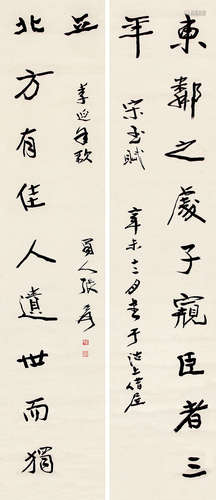 東鄰之處子窺臣者三
年
宋玉賦
辛未十二月書于滬上借居
北方有佳人遺世而獨
立
李延年歌
蜀人張爰